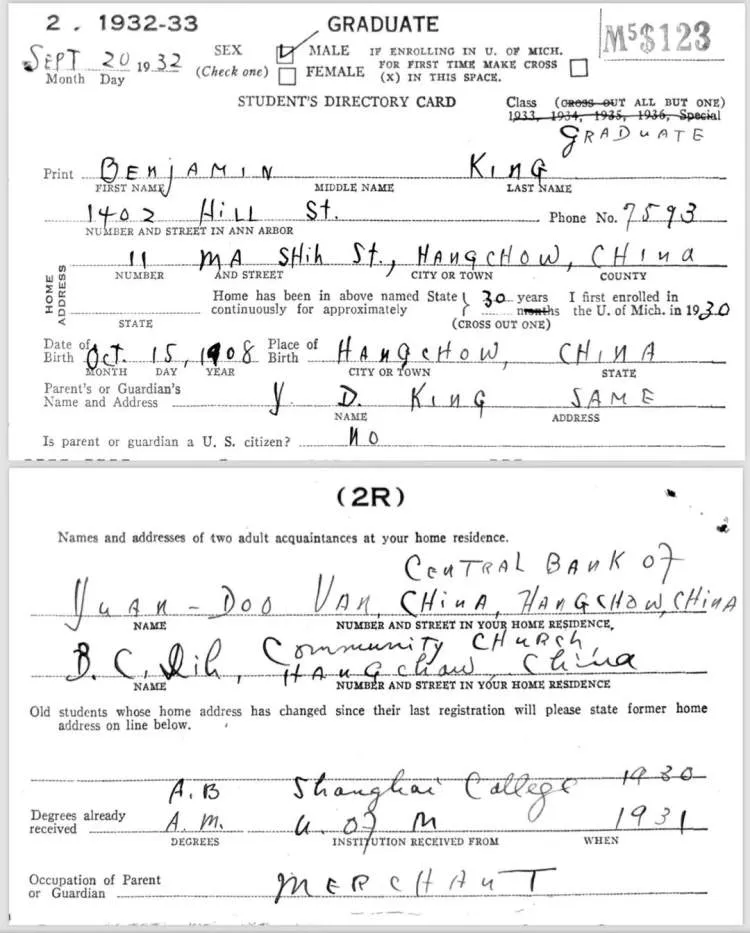 2 . 1932-33 GRADUATE M5$123
SEPT 20 1932 SEX MALE IF ENROLLING IN U. OF MICH.
Month Day (Check one) FEMALE FOR FIRST TIME MAKE CROSS
(X) IN THIS SPACE.
STUDENT'S DIRECTORY CARD Class (CROSS OUT ALL BUT ONE)
1933, 1934, 1935, 1936, Special
GRADUATE
Print BENJAMIN KING
FIRST NAME MIDDLE NAME LAST NAME
1402 HILL St. Phone No. 7593
NUMBER AND STREET IN ANN ARBOR
11 MA SHIH St., HANGCHOW, CHINA
NUMBER AND STREET CITY OR TOWN COUNTY
HOME ADDRESS
Home has been in above named State 30 years I first enrolled in
STATE continuously for approximately months the U. of Mich. in 1930
(CROSS OUT ONE)
Date of Birth OCT. 15, 1908 Place of Birth HANGCHOW, CHINA
MONTH DAY YEAR CITY OR TOWN STATE
Parent's or Guardian's
Name and Address Y. D. KING SAME
NAME ADDRESS
Is parent or guardian a U. S. citizen? NO
(2R)
Names and addresses of two adult acquaintances at your home residence.
CENTRAL BANK OF
YUAN-DOO VAN, CHINA, HANGCHOW, CHINA
NAME NUMBER AND STREET IN YOUR HOME RESIDENCE.
COMMUNITY CHURCH,
B. C. Dih, HANGchow, China
NAME NUMBER AND STREET IN YOUR HOME RESIDENCE
Old students whose home address has changed since their last registration will please state former home
address on line below.
A.B Shanghai College 1930
Degrees already
received A.M. U. OF M 1931
DEGREES INSTITUTION RECEIVED FROM WHEN
Occupation of Parent
or Guardian MERCHANT